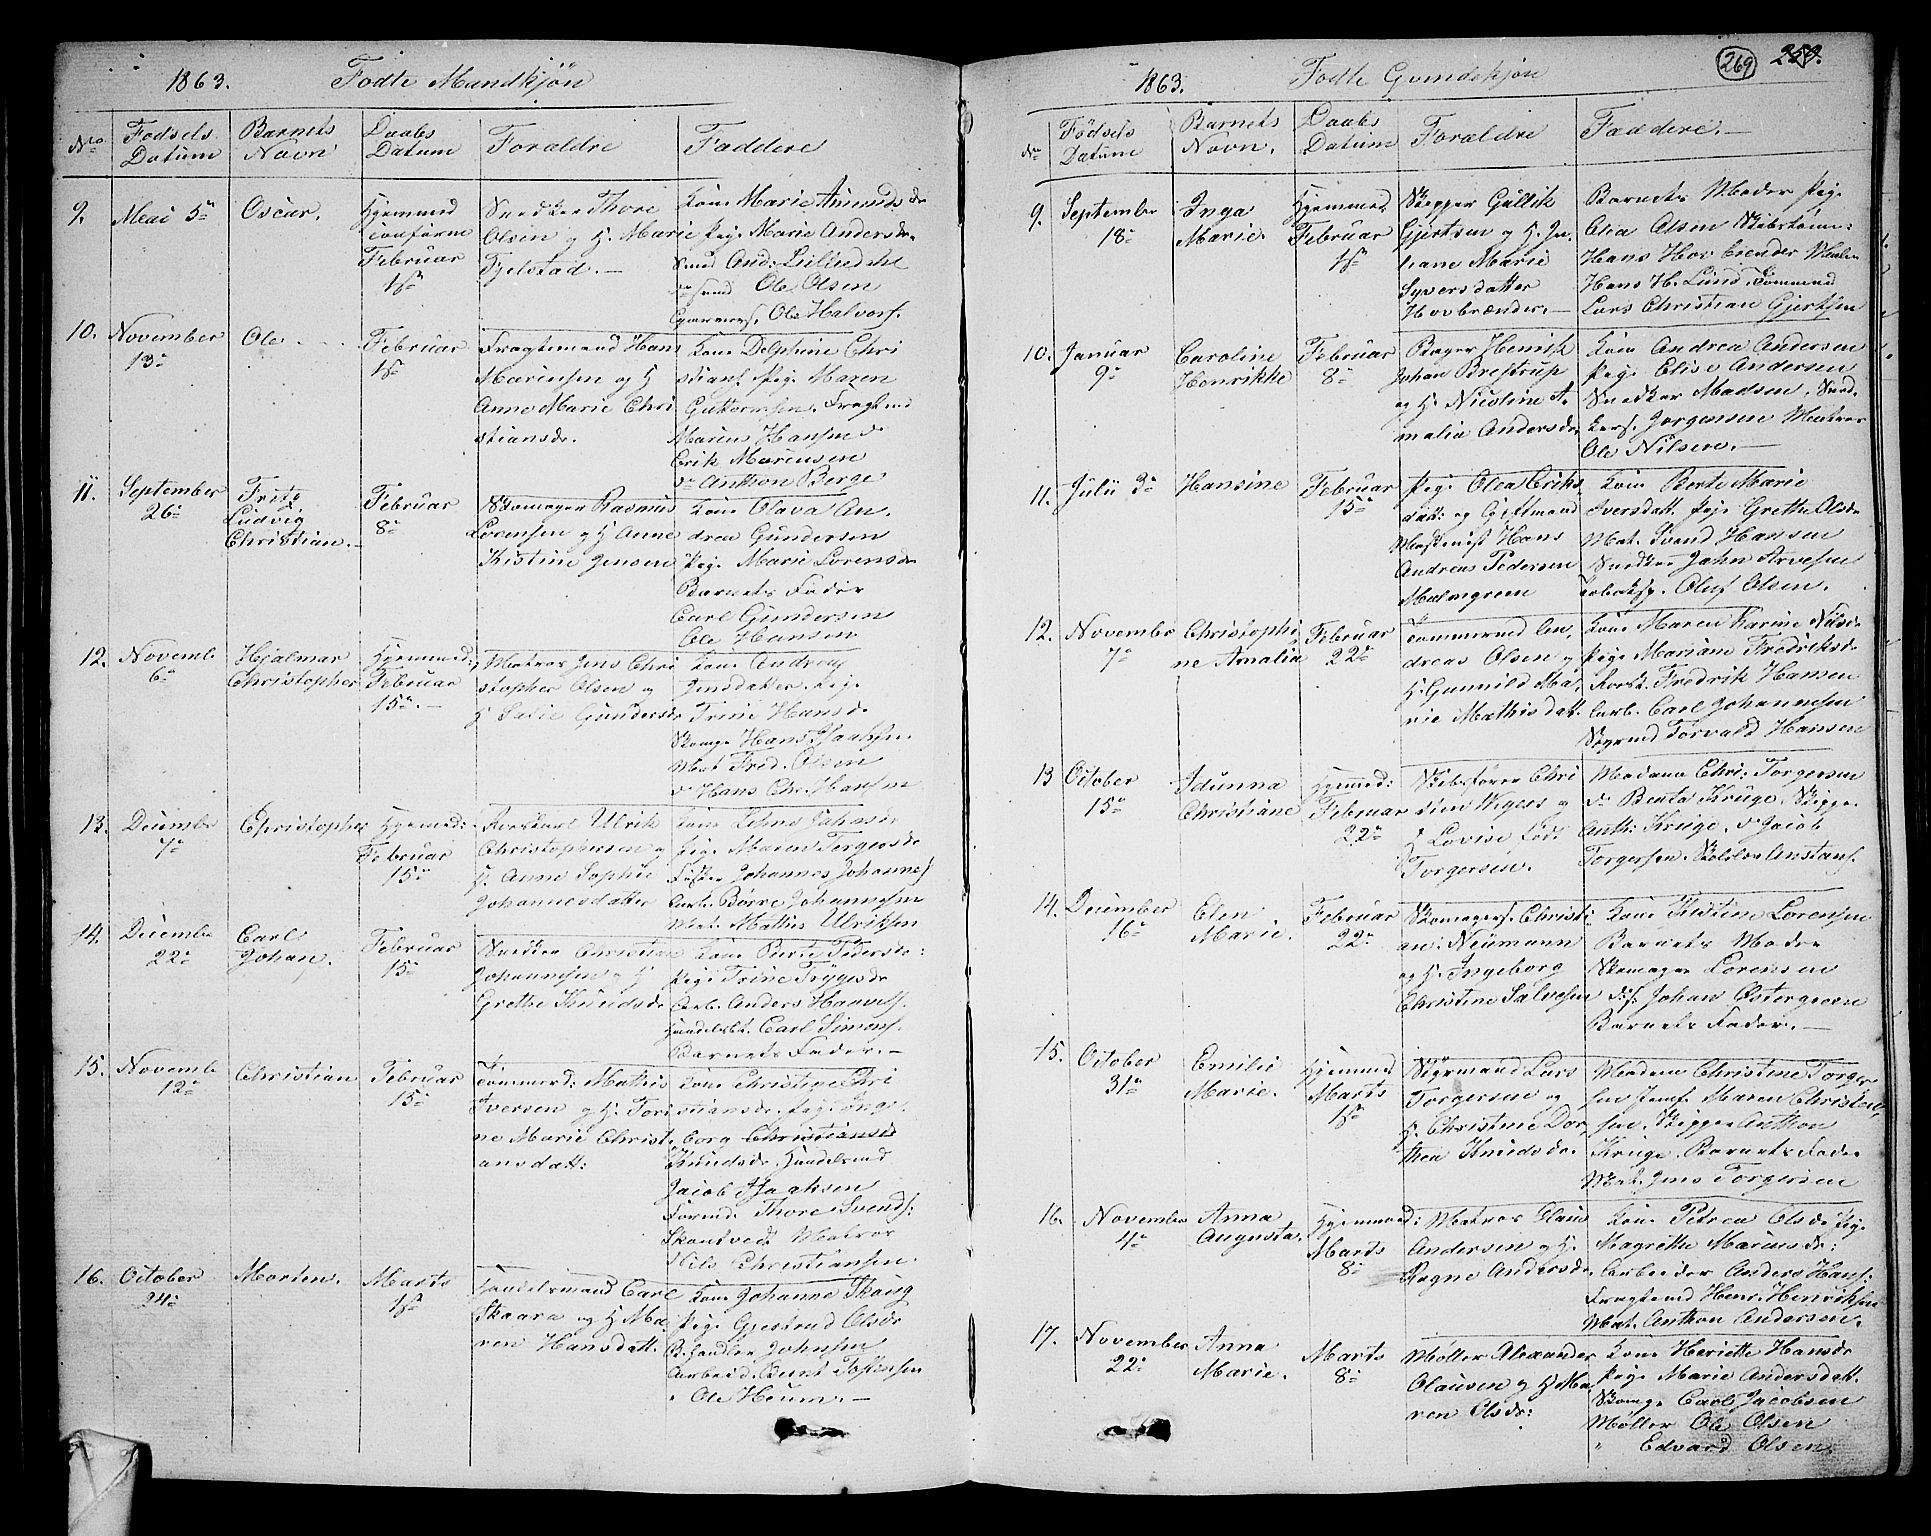 1863. Fødte Mandkjøn
No Fødsels Datum Barnets Navn Daabs Datum Forældre Faddere
9. Mai 5te Oscar. Hjemmed Conferm Februar 1ste
Snedker Thore
Olsen og H. Marie
Fjelstad. —
Kone Marie Amunds dr
Pige Marie Andersdr.
Smed And: Lilledahl
Ole Olsen
Ole Halvors.
10. November 13de Ole Februar 1ste
Fragtemand Hans
Marensen og H
Anne Marie Chri
stiansdr.
Kone Delphine Chri
stians. Pige Maren
Guttormsen. Fragtmd
Maren Hansen
Erik Marensen
do Anthon Berge
11. September 26de Fritz Ludvig Christian. — Februar 8de
Skomager Rasmus
Lorensen og H Anne
Kistine Jensen
Kone Olava An.
drea Gundersen
Pige Marie Lorensdr
Barnets Fader
Carl Gundersen
Ole Hansen
12. Novemb. 6te Hjalmar Christopher Hjemmed: Februar 15de. —
Matros Jens Chri
stopher Olsen og
H Salie Gundersdr
Kone Andrea
Jensdatter. Pige
Trine Hansdr
Skomgr Hans Isaaksen.
Mat Fred. Olsen
do Hans Chr. Hansen
13. December 7de Christopher Hjemmed: Februar 15de
Ulrik
Christophersen og
H. Anne Sophie
Johannesdatter
Kone Lene Johansdr
Pige Maren Torgersdr
Fisker Johannes Johannes
Arb. Børre Johannesen
Mat. Mathis Ulriksen
14. December 22de Carl Johan. Februar 15de
Snedker Christian
Johannesen og H
Grethe Knudsdr
Kone Berte Pedersdr:
Pige Trine Trygesdr
Arb. Anders Hanvels.
Handelsbt. Carl Simons.
Barnets Fader. —
15. Novemb. 12te Christian Februar 15de
Tømmermd: Mathis
Iversen og H. Tori
ne Marie Christ
ansdatt:
Kone Christine Chri
stiansdr. Pige Inge
borg Christiansdr
Knudsdr. Handelsmd
Jacob Isaaksen
Formd. Thore Svends:
Skontvedt Matros
Nils Christiansen.
16. October 24de Morten. Marts 1ste
Handelsmand Carl
Skaara og H Ma
ren Hansdatt.
Kone Johanne Skoug
Pige Gjestrud Olsdr
B. handler Johnsen
Arbeid. Bernt Tostensen
" Ole Heum. —
269 259.
1863. Fødte Qvindekjøn
No Fødsels Datum Barnets Navn. Daabs Datum Forældre Faddere. —
9. September 18de Inga Marie. Hjemmed. Februar 1ste
Skipper Gullik
Gjertsen og H. Ju,
liane Marie
Syversdatter
Hovbrænder. —
Barnets Moder Pige
Olea Olsen Skibstøm:
Hans Hovbrender Maler
Hans H. Lund. Tømmermd
Lars Christian Gjertsen
10. Januar 9de Caroline Henrikke Februar 8de
Bager Henrik
Johan Brestrup
og H. Nicoline A.
malia Andersdr.
Kone Andrea Andersen
Pige Elise Andersen
Snedker Madsen, Sned.
kers. Jorgensen Matros
Ole Nilsen. —
11. Julii 3de Hansine Februar 15de
Pige Olea Eriks
datt: og Giftmand
Maskinist Hans
Andreas Pedersen
Malmgreen
Kone Berte Marie
Iversdatt. Pige Grethe Olsdr
Mat. Svend Hansen
Snedker John Arvesen
Arbeidsf. Oluf Olsen.
12. November 7de Christophi ne Amalia Februar 22de
Tømmermd An,
dreas Olsen og
H. Gunnild Ma,
rie Mathisdatt.
Kone Maren Karine Nilsdr
Pige Mariane Fredriksdr
Fredrik Hansen
Arb. Carl Johannesen
Styrmd Torvald Hansen
13 October 15de Idunna Christiane Hjemmed: Februar 22de
Skibsfører Chri
stien Wgess og
H Lovise født
Torgersen.
Madam Chri: Torgersen
do Berta Kruge. Skippr
Anth: Kruge. do Jacob
Torgersen. Skolelær Anstans.
14. December 16de Elen Marie. Februar 22de
Skomagers. Christi
an: Neumann
og H. Ingeborg
Christine Salvesen
Kone Kistine Lorensen
Barnets Moder
Skomager Lorensen
Johan Østergreen
Barnets Fader. —
15. October 31te Emilie Marie. Hjemmed Marts 1ste
Styrmand Lars
Torgersen og
H. Christine Dor,
thea Knudsdr.
Madam Christine Torger
sen Jomf. Maren Christen,
sen. Skipper Anthon
Kruge. Barnets Fader
Mat. Jens Torgersen
16. November 4de Anna Augusta. Hjemmed: Marts 8de
Matros Claus
Andersen og H.
Ragne Andersdr.
Kone Petrea Olsdr Pige
Magrethe Mariusdr:
Arbeider Anders Hans:
Fragtemd Henr. Henriksen
Mat. Anthon Andersen.
17. November 22de Anna Marie. Marts 8de
Møller Alexander
Olausen og H Ma
ren Olsdr:
Kone Hariette Hansdr
Pige Marie Andersdatt.
Skomgr Carl Jacobsen
Møller Ole Olsen
" Edvard Olsen.